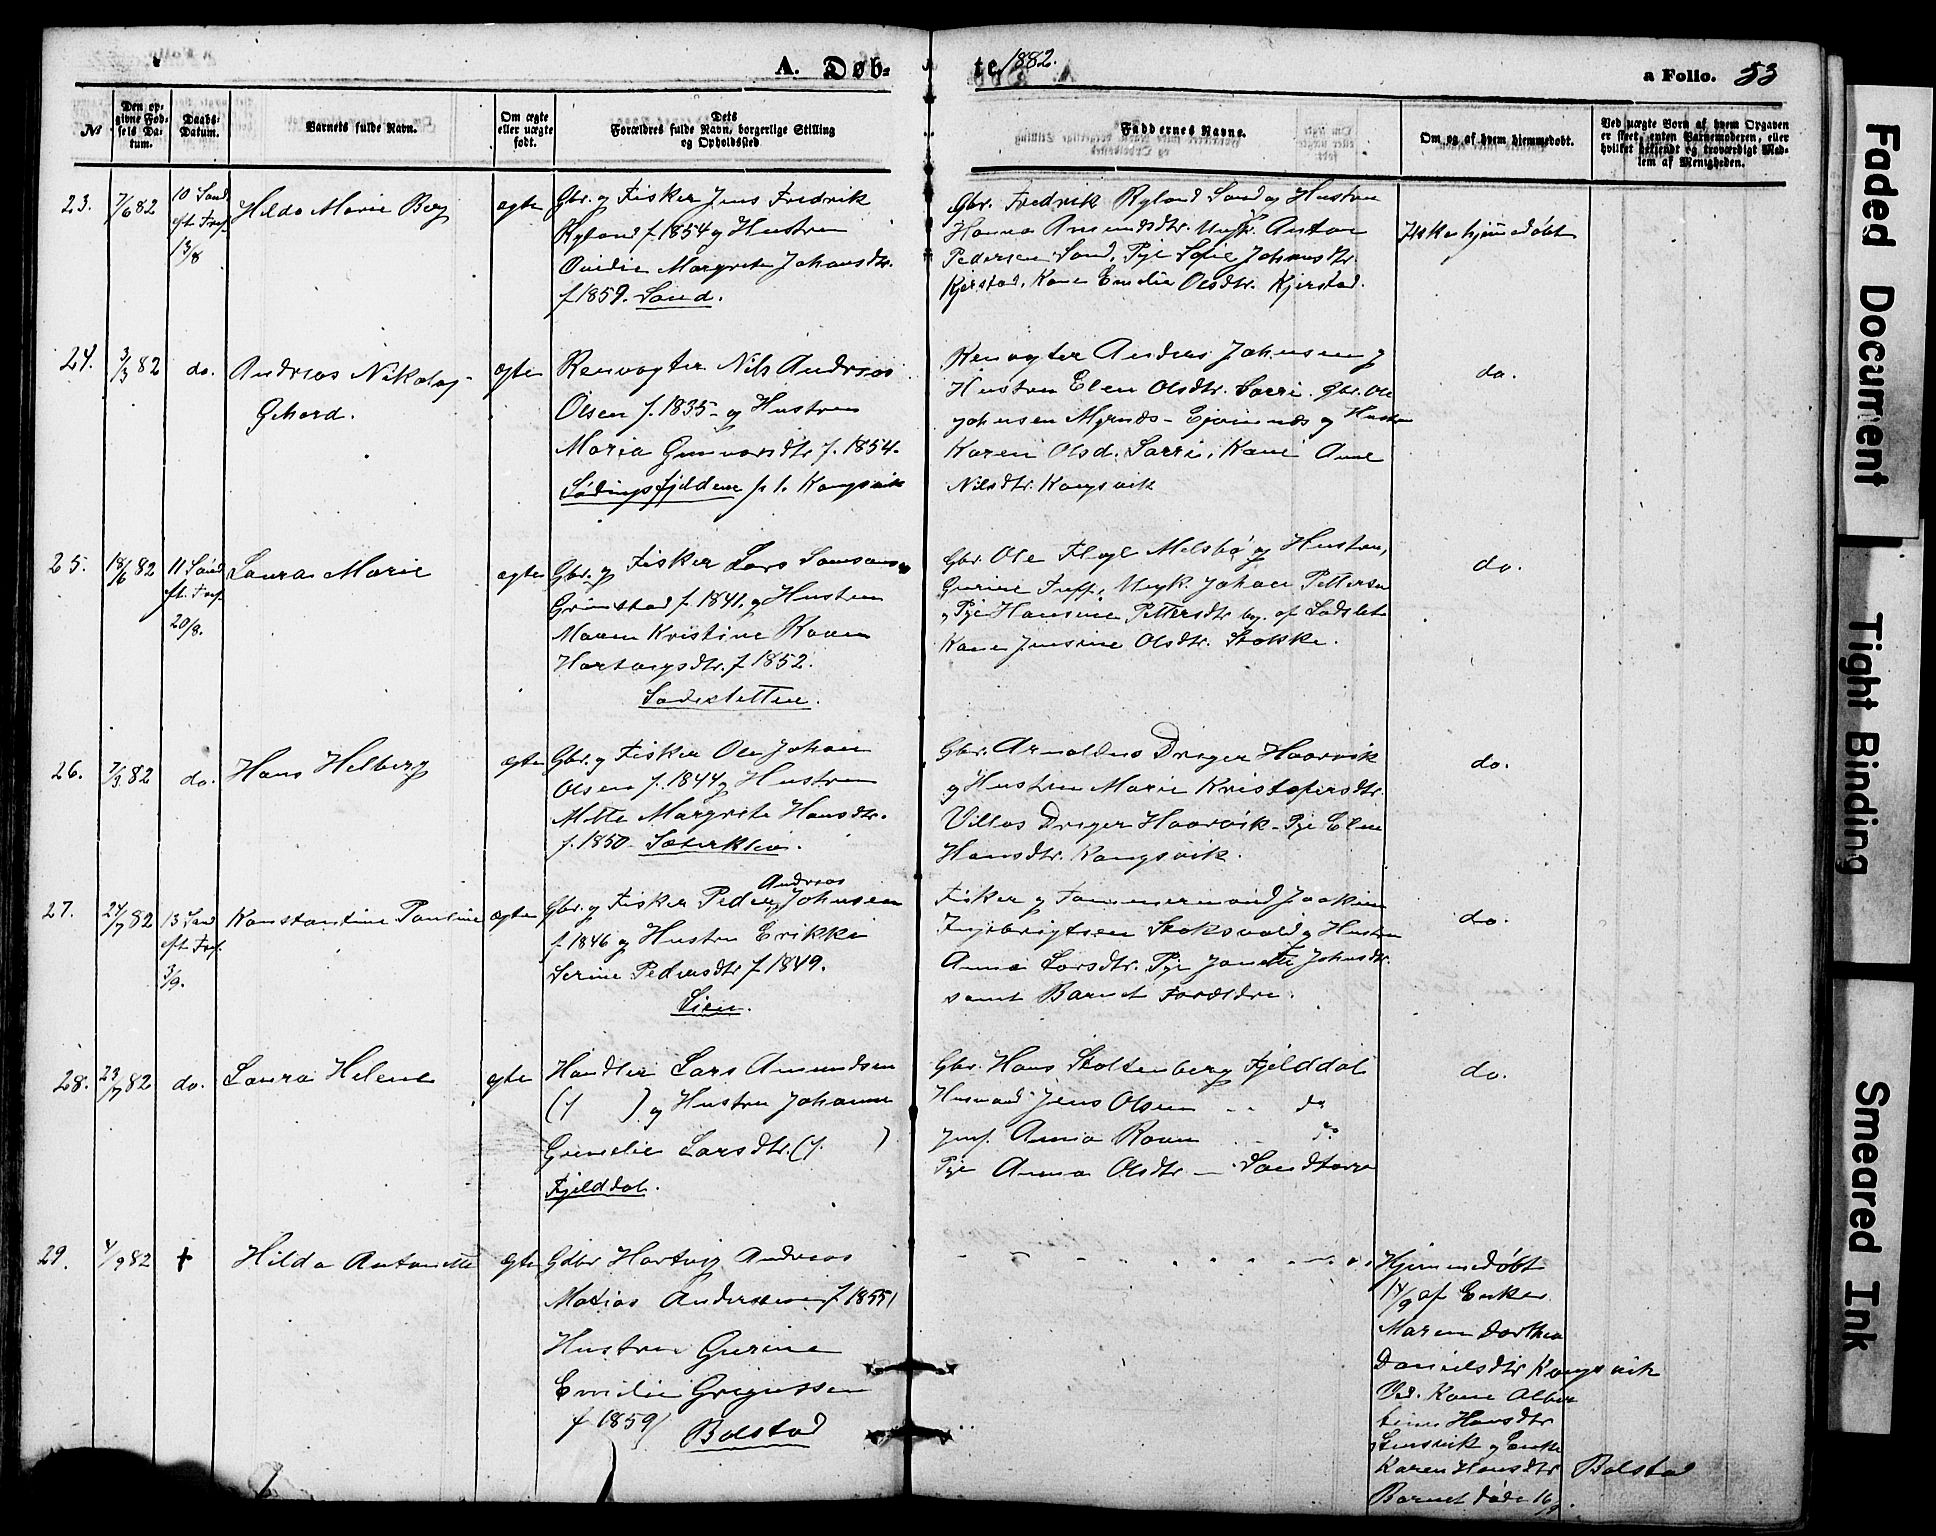 A. Døb-
te 1882.
a Folio. 53
№
Den op-
givne Fød-
sels Da-
tum.
Daabs-
Datum.
Barnets fulde Navn.
Om ægte
eller uægte
født.
Dets
Forældres fulde Navn, borgerlige Stilling
og Opholdssted
Faddernes Navne.
Om og af hvem hjemmedøbt.
Ved uægte Børn af hvem Opgaven
er skeet, enten Barnemoderen, eller
hvilket bekjendt og troværdigt Med-
lem af Menigheden.
23.
7/6 82
10 Sønd
eft. Tref.
13/8
Hilda Marie Berg
ægte
Gbr. og Fisker Jens Fredrik
Ryland f. 1854 og Hustru
Ovidie Margrete Johansdtr.
f. 1859. Sand.
Gbr. Fredrik Ryland Sand og Hustru
Hanna Amundsdtr. Ungk. Anton
Pedersen Sand, Pige Sofie Johansdtr.
Kjerstad, Kone Emilie Olsdtr. Kjerstad.
Ikke hjemmedøbt
24.
3/3 82
do.
Andreas Nikolaj
Gehard.
ægte
Renvogter Nils Andreas
Olsen f. 1835 og Hustru
Maria Gunnarsdtr f. 1854.
Sødingsfjeldene p. t. Kongsvik
Renvogter Anders Johnsen og
Hustru Elen Olsdtr. Sarri. Gbr. Ole
Johnsen Myrnes og Hustru
Karen Olsd. Sarri, Kone Ane
Nilsdtr. Kongsvik
do.
25.
18/6 82
11 Sønd
eft. Tref.
20/8.
Laura Marie
ægte
Gbr. og Fisker Lars Larsen
Grimstad f. 1841. og Hustru
Maren Kristine Raven
Hartvigsdtr. f 1852.
Sandsletten.
Gbr. Ole Flygl Melsbø og Hustru,
Gurine Ungk. Johan Pettersen
og Pige Hansine Pettersdtr beg. af Sandslet
Kone Jensine Olsdtr. Stokke.
do.
26.
7/3 82
do.
Hans Helberg
ægte
Gbr. og Fisker Ole Johan
Olsen f. 1844 og Hustru
Mette Margrete Hansdtr.
f. 1850. Sæterklei.
Gbr. Arnoldus Dreyer Haarvik
og Hustru Marie Kristofersdtr.
Villas Dreyer Haarvik. Pige Elen
Hansdtr. Kongsvik.
do.
27.
24/7 82
13 Sønd
eft. Tref.
3/9.
Konstantine Pauline
ægte
Andreas
Gbr. og Fisker Peder Johnsen
f. 1846 og Hustru Erikke
Serine Pedersdtr f 1849.
Lien.
Fisker og Tømmermand Joakim
Ingebrigtsen Stoksvold og Hustru
Anna Larsdtr. Pige Janette Johnsdtr.
samt Barnets Forældre.
do.
28.
23/7 82
do.
Laura Helene
ægte
Handler Lars Amundsen
(f ) og Hustru Johanne
Gemelie Larsdtr. (f. )
Fjelddal.
Gbr. Hans Stoltenberg Fjelddal
Husmand Jens Olsen - - do
Jmf. Anna Raven - - do
Pige Anna Olsdtr. — Sandtorg
do.
29.
4/9 82
†
Hilda Antonette
ægte
Gdbr Hartvig Andreas
Matias Anderssen f 1855/
Hustru Gurine
Emilie Grigussen
f 1859/ Bolstad
Hjemmedøbt
14/9 af Enken
Maren Dorthea
Danielsdtr Kongsvik
Ved. Kone Alber
tine Hansdtr
og Enke
Karen Hansdtr Bolstad
Barnet døde 16/9.
Faded Document
Tight Binding
Smeared Ink